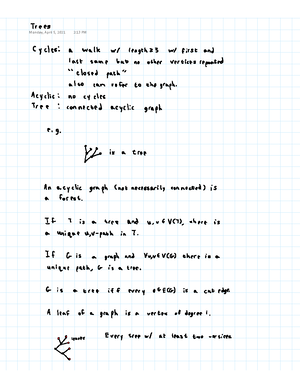 Trees
Monday April 5, 2021 2:23 PM
Cycles: a walk w/ length ≥ 3 w/ first and
last same but no other vertices repeated
"closed path"
also can refer to the graph.
Acyclic: no cycles
Tree: connected acyclic graph
e.g.
is a tree
An acyclic graph (not necessarily connected) is
a forest.
If T is a tree and u,v ∈ V(T), there is
a unique u,v-path in T.
If G is a graph and ∀u,v ∈ V(G) there is a
unique path, G is a tree.
G is a tree iff every e ∈ E(G) is a cut edge
A leaf of a graph is a vertex of degree 1.
leaves
Every tree w/ at least two vertices